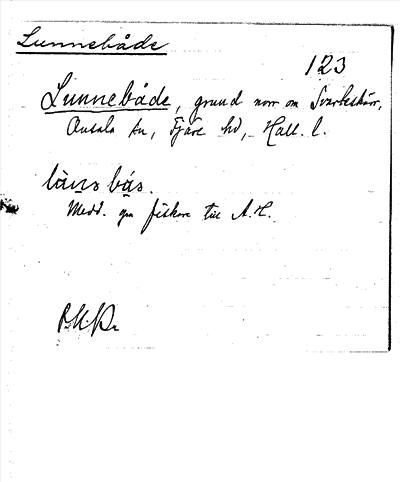 Lunnebåde
123
Lunnebåde, grund norr om Svarteskär,
Onsala sn, Fjäre hd, Hall. l.
Medd. gm fiskare till A.H.